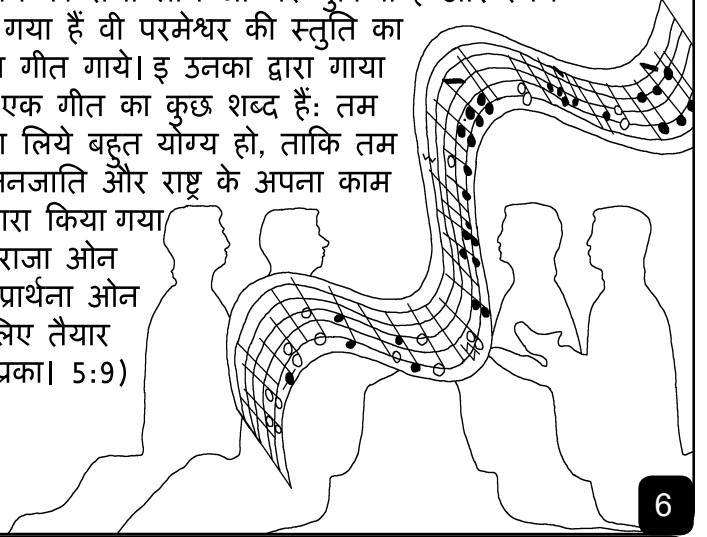 गया हैं वी परमेश्वर की स्तुति का
गीत गाये| इ उनका द्वारा गाया
एक गीत का कुछ शब्द हैं: तम
लिये बहुत योग्य हो, ताकि तम
और राष्ट्र के अपना काम
किया गया
राजा ओन
प्रार्थना ओन
तैयार
5:9)
6